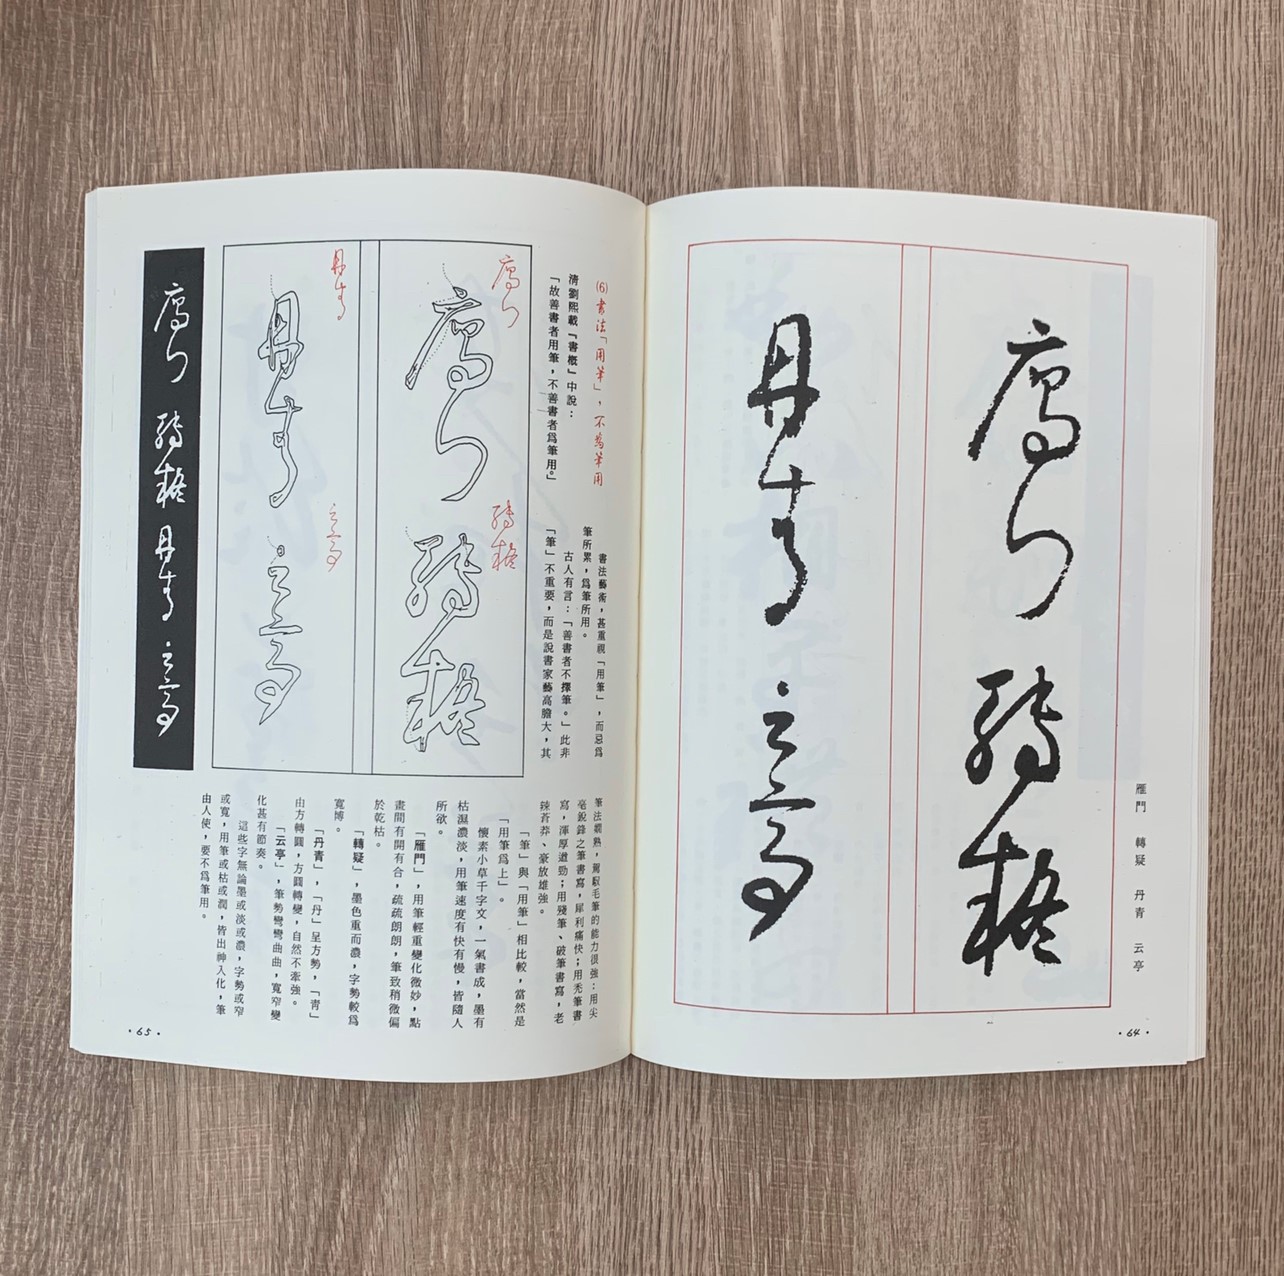 雁門　轉疑　丹青　云亭
雁門轉疑
丹青云亭
·64·
(6)書法「用筆」，不為筆用
清劉熙載『書概』中說：
「故善書者用筆，不善書者爲筆用。」
書法藝術，甚重視「用筆」，而忌爲
筆所累，爲筆所用。
古人有言：「善書者不擇筆。」此非
「筆」不重要，而是說書家藝高膽大，其
筆法嫻熟，駕馭毛筆的能力很強：用尖
毫銳鋒之筆書寫，犀利痛快；用禿筆書
寫，渾厚遒勁；用殘筆、破筆書寫，老
辣蒼莽、豪放雄強。
「筆」與「用筆」相比較，當然是
「用筆爲上」。
懷素小草千字文，一氣書成，墨有
枯濕濃淡，用筆速度有快有慢，皆隨人
所欲。
「雁門」，用筆輕重變化微妙，點
畫間有開有合，疏疏朗朗，筆致稍微偏
於乾枯。
「轉疑」，墨色重而濃，字勢較爲
寬博。
「丹青」，「丹」呈方勢，「青」
由方轉圓，方圓轉變，自然不牽強。
「云亭」，筆勢彎彎曲曲，寬窄變
化甚有節奏。
這些字無論墨或淡或濃，字勢或窄
或寬，用筆或枯或潤，皆出神入化，筆
由人使，要不爲筆用。
雁門
轉疑
雁門轉疑
丹青
云亭
丹青云亭
雁門轉疑丹青云亭
·65·